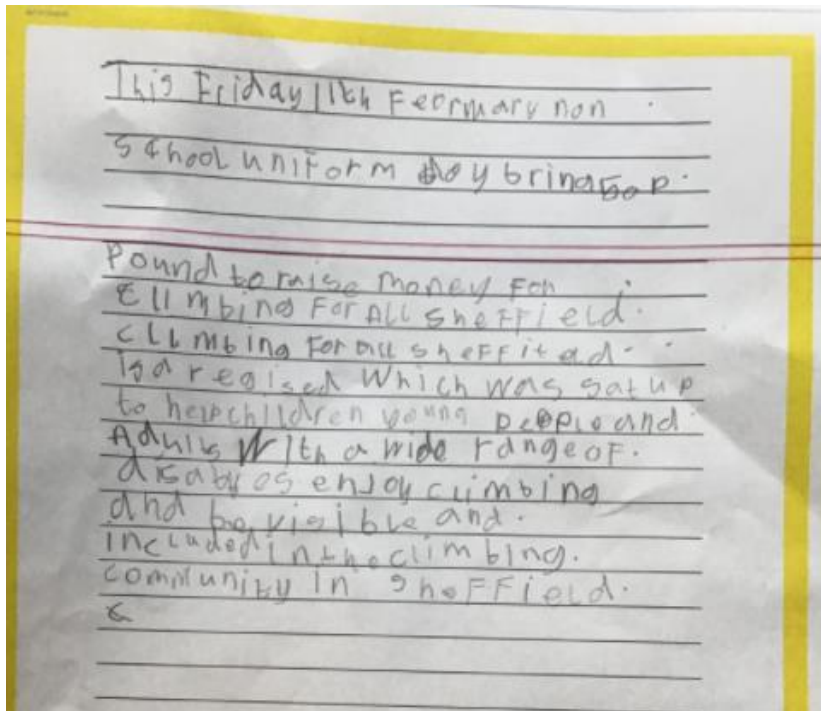 This Friday 11th Feormary non
school uniform day bring
Pound to raise money For
Climbing For ALL SheFField.
CLLmbing For all sheFFitad.
is a regised Which was sat up
to help children young people and
Adults With a wide range oF.
enjoy climbing
and be visible and.
included in the climbing.
community in SheFField.